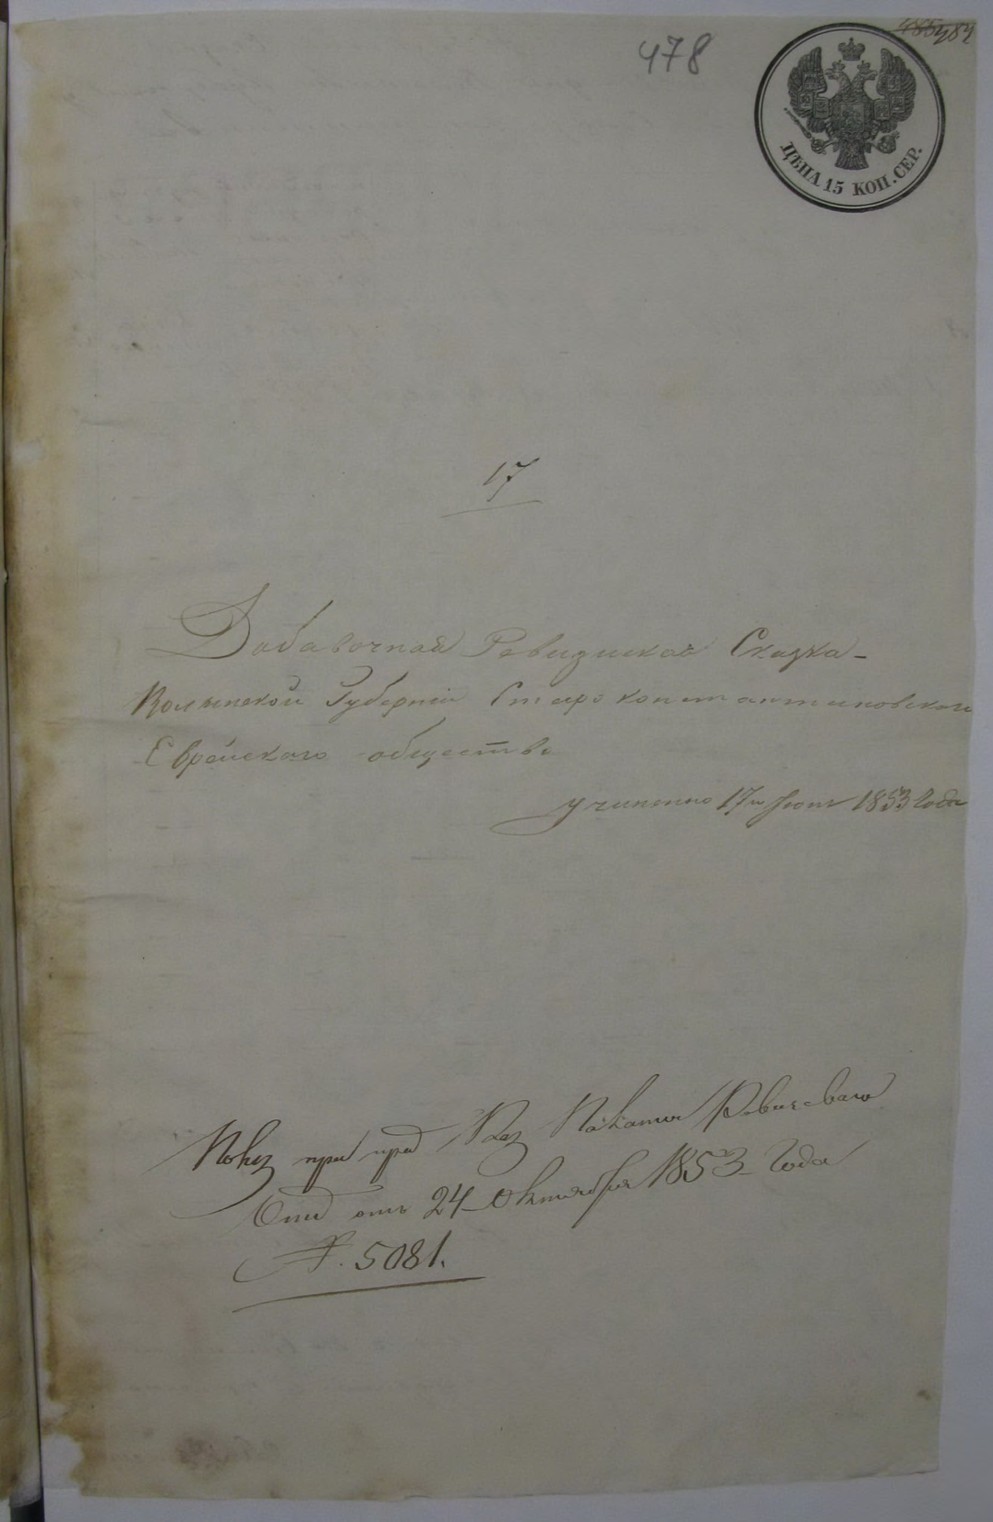 478
485 484
ЦѢНА 15 КОП. СЕР.
17
Добавочная Ревизская Сказка
Волынской Губерніи Старо константиновскаго
Еврейского общества
учинено 17го Іюня 1853 Года
при пред Каз Палаты Ревизскаго
Отд отъ 24 Октября 1853 Года
№. 5081.